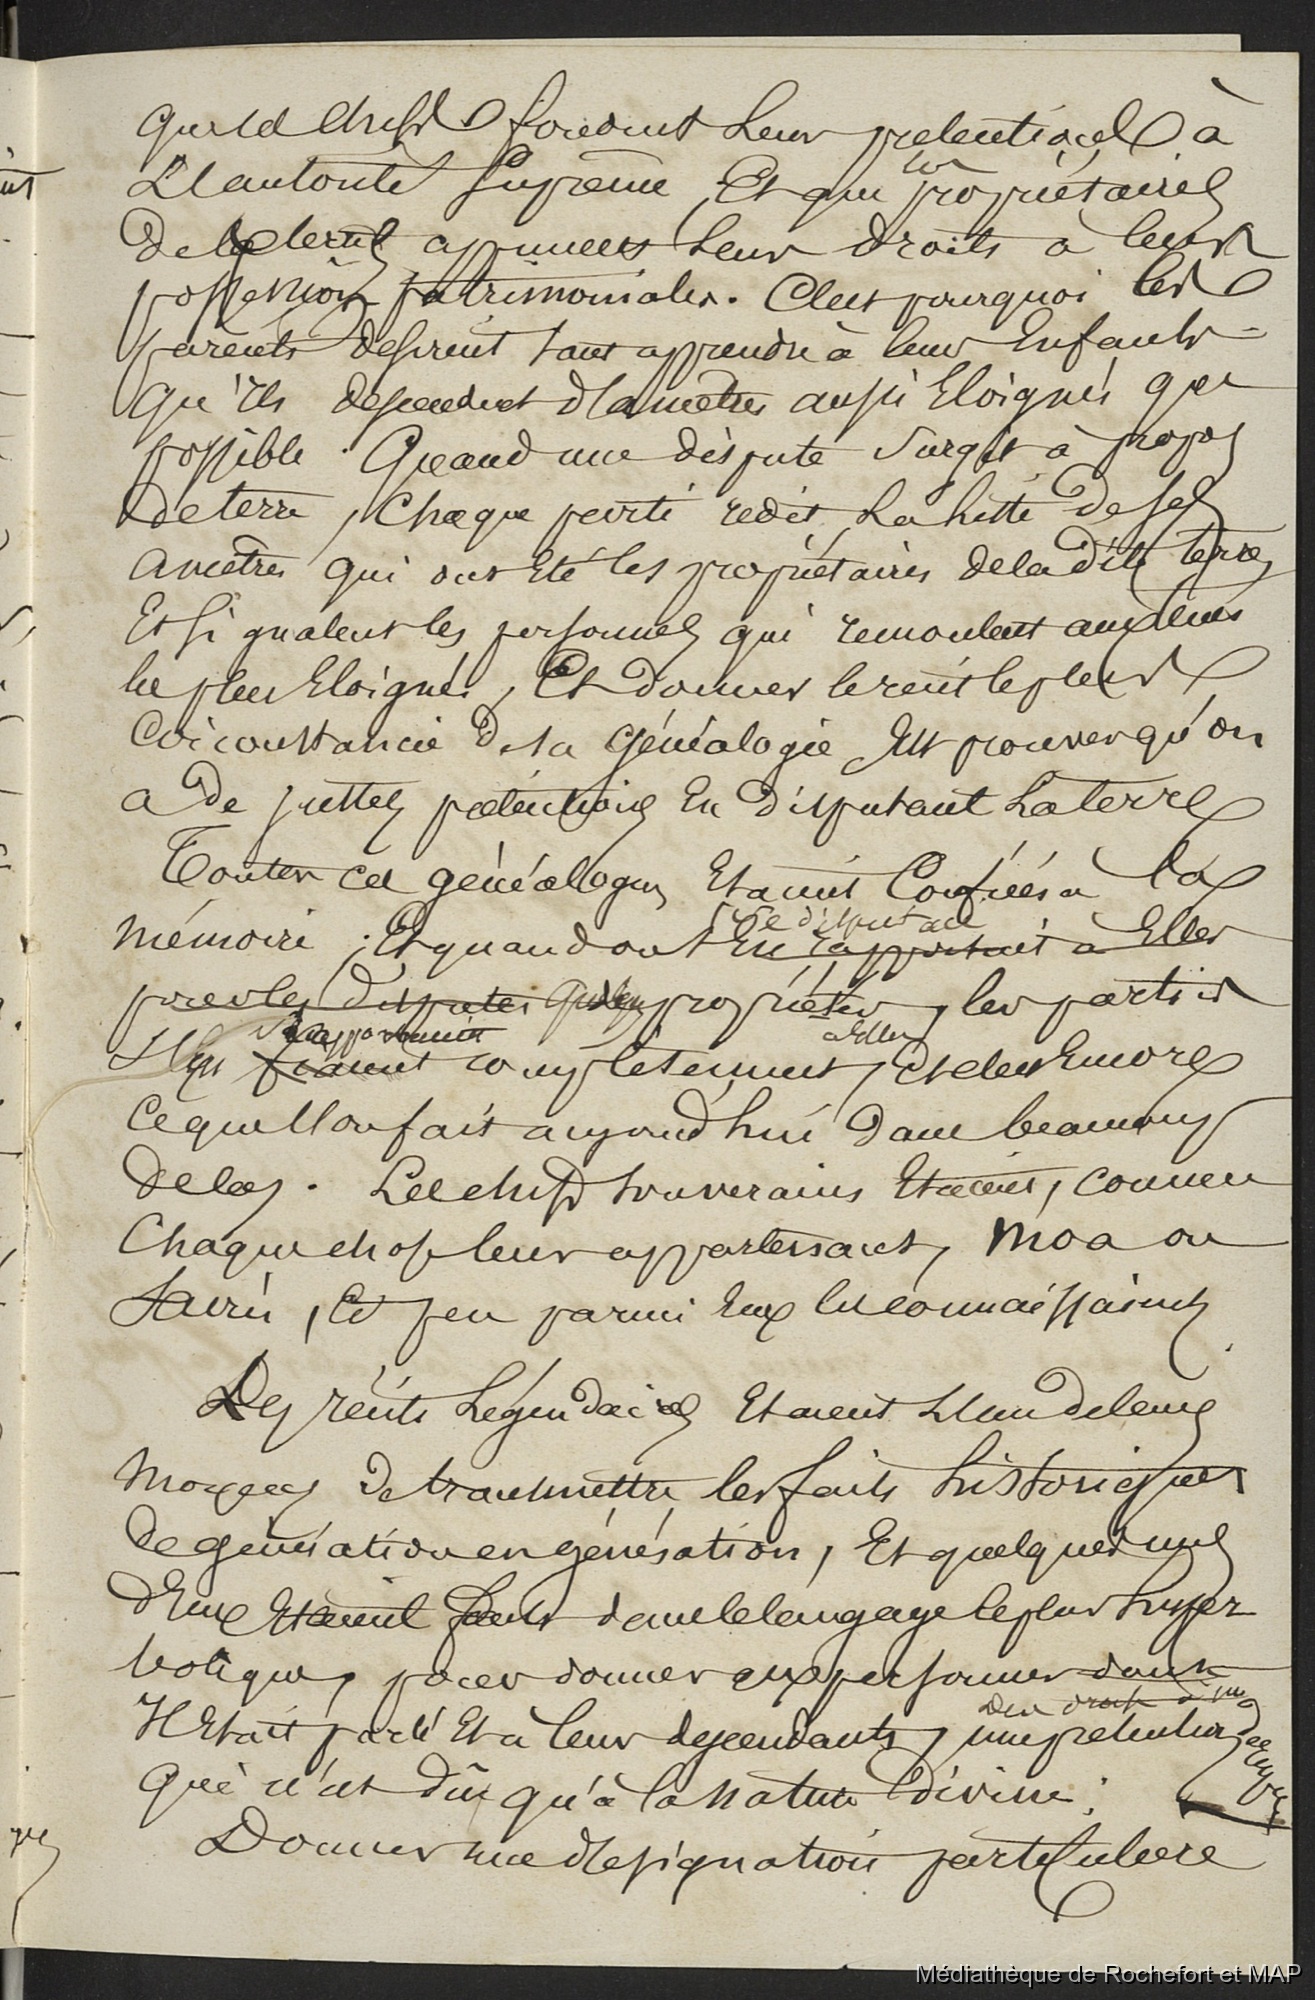 que les chefs fondent leur prétentions à
l'autorité suprême, Et que les propriétaires
de la terre appuient leur droits à leurs
possession patrimoniales. C'est pourquoi les
parents désirent tant apprendre à leur Enfants
qu'ils descendent d'ancêtres aussi Eloignés que
possible. Quand une dispute surgit à propos
de terre, chaque parti redit la liste de ses
ancêtres qui ont Eté les propriétaires de la dite terre,
Et signalent les personnes qui remontent aux temps
les plus Eloignés, Et donner le récit le plus
circonstancié de sa généalogie Est prouver qu'on
a de justes prétentions En disputant la terre
Toutes ces généalogies Etaient Confiées à la
mémoire ; Et quand on se disputait En rapportait à Elles
pour les disputes propriétés, les partis
s'en rapportaient fiaient complètement à Elles, et c'est Encore
ce que l'on fait aujourd'hui dans beaucoup
de cas. Les chefs souverains Etaient, comme
chaque chose leur appartenant, moa ou
sacrés, Et peu parmi Eux les connaissaient.
Les récits légendaires Etaient l'un de leurs
moyens de transmettre les faits historiques
de génération en génération, Et quelques uns
d'Eux Etaient faits dans le langage le plus hyper
bolique, pour donner aux personnes dont
Il Etait parlé Et à leur descendants, des droits à une prétention
qui n'est dûe qu'à la nature divine.
Donner une désignation particulière
Médiathèque de Rochefort et MAP